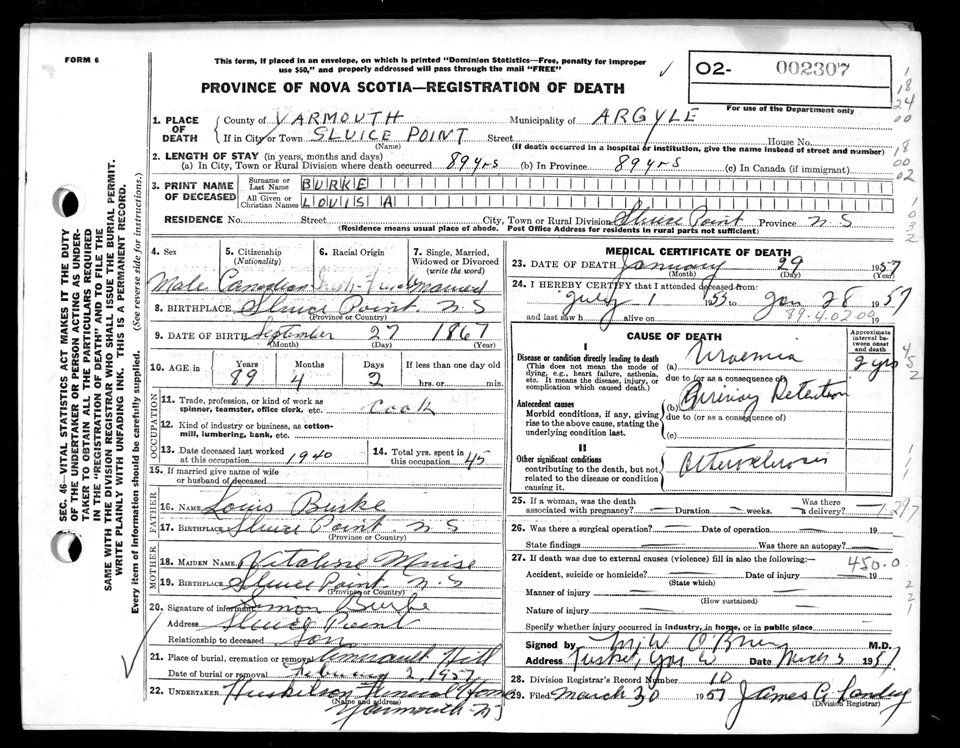 FORM 6
This form, if placed in an envelope, on which is printed "Dominion Statistics—Free, penalty for improper
use $50," and properly addressed will pass through the mail "FREE"
O2- 002307
For use of the Department only
PROVINCE OF NOVA SCOTIA—REGISTRATION OF DEATH
1. PLACE OF DEATH
County of YARMOUTH Municipality of ARGYLE
If in City or Town SLUICE POINT Street House No.
(Name) (If death occurred in a hospital or institution, give the name instead of street and number)
2. LENGTH OF STAY (in years, months and days)
(a) In City, Town or Rural Division where death occurred 89 yrs (b) In Province 89 yrs (c) In Canada (if immigrant)
3. PRINT NAME OF DECEASED
Surname or Last Name BURKE
All Given or Christian Names LOUIS A
RESIDENCE No. Street City, Town or Rural Division Sluice Point Province N.S
(Residence means usual place of abode. Post Office Address for residents in rural parts not sufficient)
4. Sex 5. Citizenship (Nationality) 6. Racial Origin 7. Single, Married, Widowed or Divorced (write the word)
Male Canadian Married
8. BIRTHPLACE Sluice Point N.S
(Province or Country)
9. DATE OF BIRTH September 27 1867
(Month) (Day) (Year)
10. AGE in Years Months Days If less than one day old
89 4 2 hrs. or min.
OCCUPATION
11. Trade, profession, or kind of work as
spinner, teamster, office clerk, etc. Cook
12. Kind of industry or business, as cotton-
mill, lumbering, bank, etc.
13. Date deceased last worked
at this occupation 1940
14. Total yrs. spent in
this occupation 45
15. If married give name of wife
or husband of deceased
FATHER
16. NAME Louis Burke
17. BIRTHPLACE Sluice Point N.S
(Province or Country)
MOTHER
18. MAIDEN NAME Vitaline Muise
19. BIRTHPLACE Sluice Point N.S
(Province or Country)
20. Signature of informant Simon Burke
Address Sluice Point
Relationship to deceased Son
21. Place of burial, cremation or removal Hill
Date of burial or removal February 2, 1957
22. UNDERTAKER Huskilson Funeral Home
(Name and address)
Yarmouth
MEDICAL CERTIFICATE OF DEATH
23. DATE OF DEATH January 29 1957
(Month) (Day) (Year)
24. I HEREBY CERTIFY that I attended deceased from
July 1 1955 to Jan 28 1957
and last saw h alive on 19
89-4.02.00
CAUSE OF DEATH
Approximate interval between onset and death
I
Disease or condition directly leading to death
(This does not mean the mode of
dying, e.g., heart failure, asthenia,
etc. It means the disease, injury, or
complication which caused death.)
(a) Uraemia 2 yrs
due to (or as a consequence of)
Antecedent causes
Morbid conditions, if any, giving
rise to the above cause, stating the
underlying condition last.
(b) Urinary Retention
due to (or as a consequence of)
(c)
II
Other significant conditions
contributing to the death, but not
related to the disease or condition
causing it.
Arteriosclerosis
25. If a woman, was the death
associated with pregnancy? Duration weeks. Was there a delivery?
26. Was there a surgical operation? Date of operation 19
State findings Was there an autopsy?
27. If death was due to external causes (violence) fill in also the following:
450.0
Accident, suicide or homicide? Date of injury 19
(State which)
Manner of injury
(How sustained)
Nature of injury
Specify whether injury occurred in industry, in home, or in public place
Signed by O'Brien M.D.
Address Tusket, Yar Date March 3 1957
28. Division Registrar's Record Number 10
29. Filed March 30 1957 James C. Landry
(Division Registrar)
SEC. 46—VITAL STATISTICS ACT MAKES IT THE DUTY
OF THE UNDERTAKER OR PERSON ACTING AS UNDER-
TAKER TO OBTAIN ALL THE PARTICULARS REQUIRED
IN THE "REGISTRATION OF DEATH" AND TO FILE THE
SAME WITH THE DIVISION REGISTRAR WHO SHALL ISSUE THE BURIAL PERMIT.
WRITE PLAINLY WITH UNFADING INK. THIS IS A PERMANENT RECORD.
Every item of information should be carefully supplied. (See reverse side for instructions.)